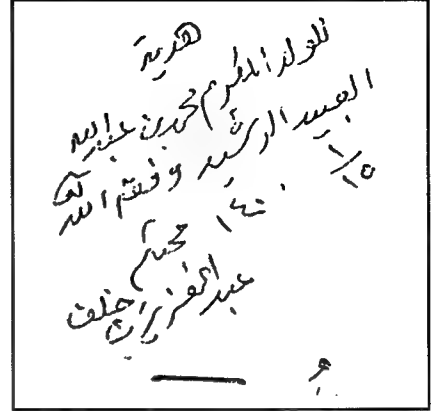 هدية
للولد المكرم محمد بن عبدالله
العبيد الرشيد وفقه الله
١٥/١
١٤٠٠ محبكم
عبدالعزيز خلف